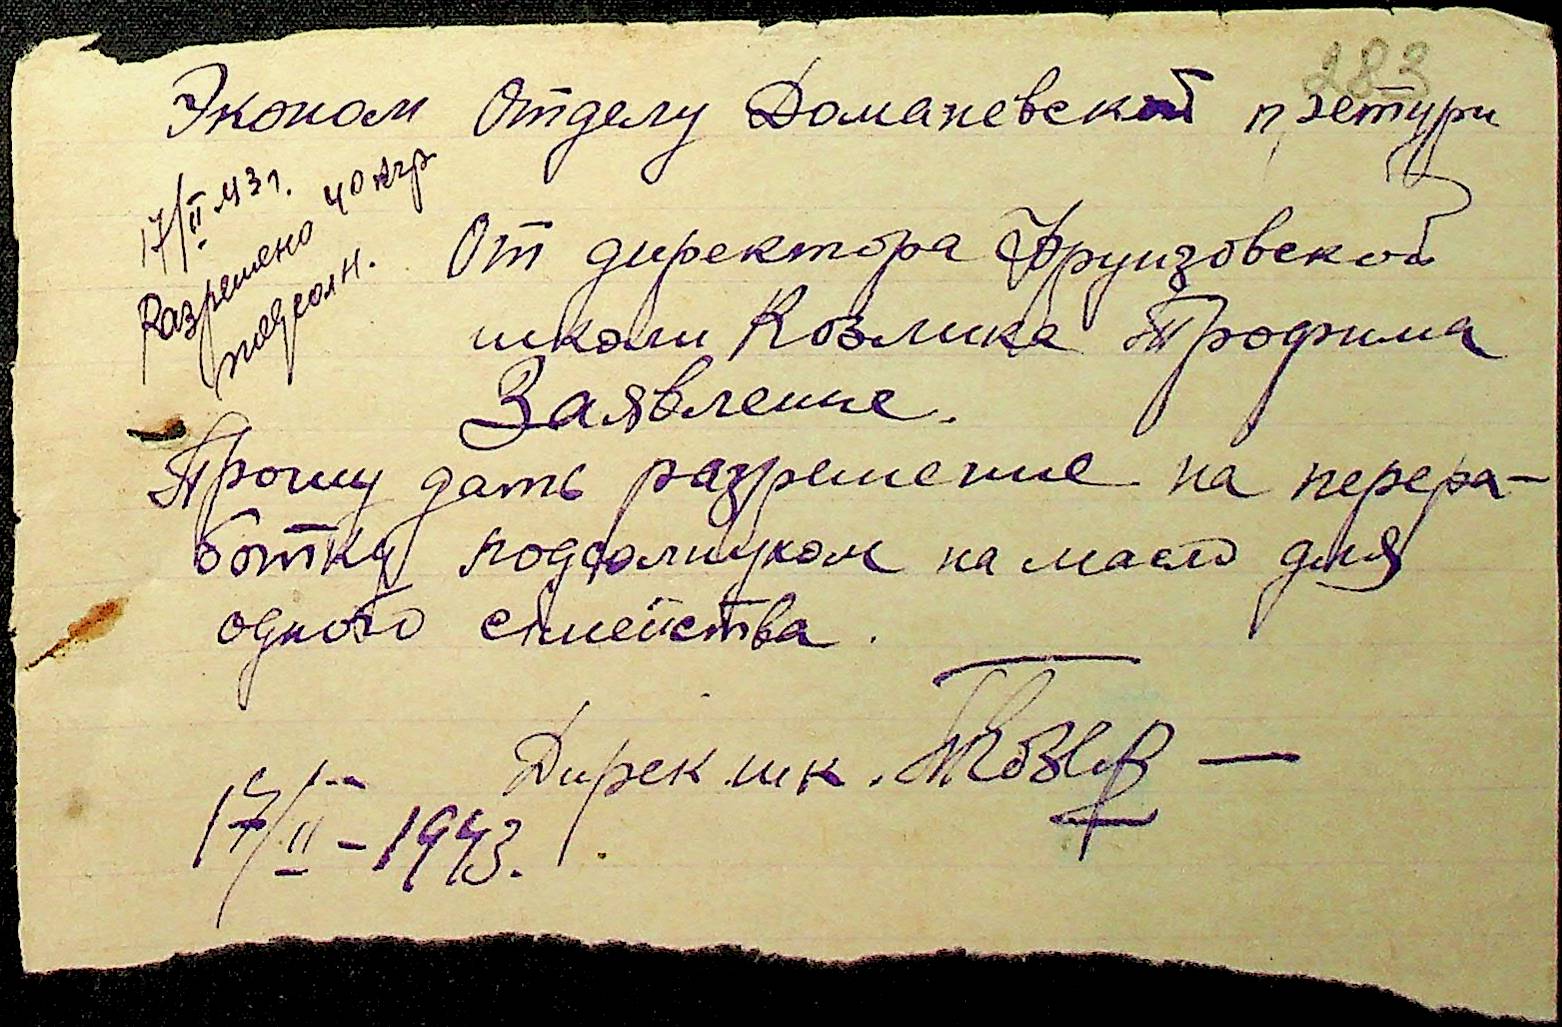 283
Эконом Отделу Доманевской претури
17/II 43 г.
Разрешено 40 кгр
подсолн.
От директора Фрунзовской
школи Козлика Трофима
Заявление.
Прошу дать разрешение на перера-
ботку подсолнухом на масло для
одного семейства.
Дирек шк.
17/II - 1943.